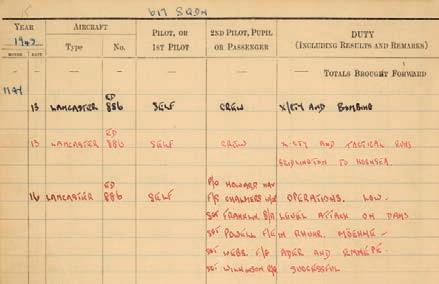 617 SQDN
YEAR AIRCRAFT PILOT, OR 2ND PILOT, PUPIL DUTY
1943 Type No. 1ST PILOT OR PASSENGER (INCLUDING RESULTS AND REMARKS)
MONTH DATE
— — — — — — TOTALS BROUGHT FORWARD
MAY
13 LANCASTER ED 886 SELF CREW X/CTY AND BOMBING
13 LANCASTER ED 886 SELF CREW X-CTY AND TACTICAL RUNS
BRIDLINGTON TO HORNSEA.
F/O HOWARD NAV
16 LANCASTER ED 886 SELF F/S CHALMERS W/OP OPERATIONS. LOW
SGT FRANKLIN B/A LEVEL ATTACK ON DAMS
SGT POWELL F/E IN RHUHR. MOEHNE –
SGT WEBB. F/G ADER AND ENNEPE.
SGT WILKINSON R/G SUCCESSFUL